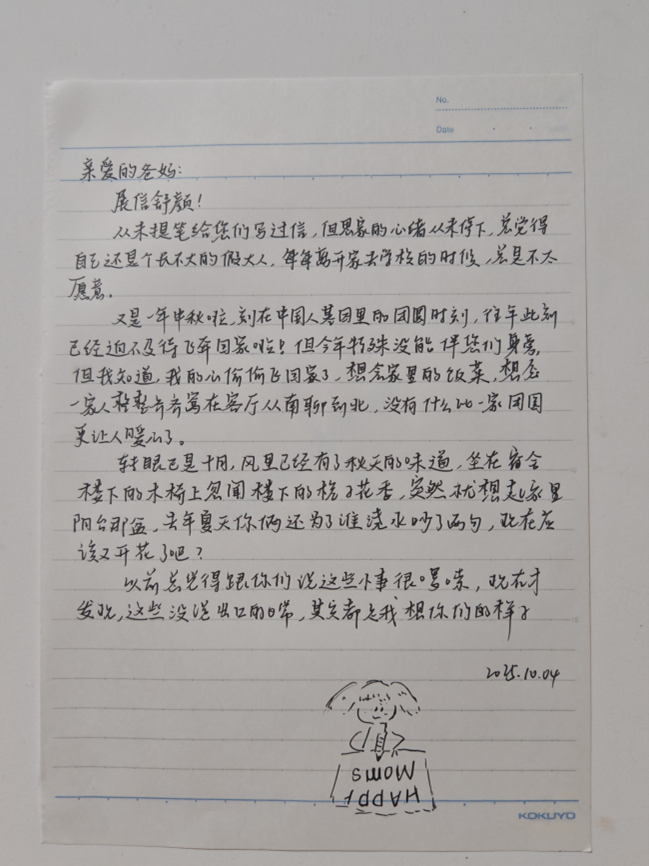 No.
Date
亲爱的爸妈：
展信舒颜！
从未提笔给您们写过信，但思家的心绪从未停下，总觉得
自己还是个长不大的假大人，每每离开家去学校的时候，总是不太
愿意。
又是一年中秋啦，刻在中国人基因里的团圆时刻，往年此刻
已经迫不及待飞奔回家啦！但今年特殊没能伴您们身旁，
但我知道，我的心偷偷飞回家了，想念家里的饭菜，想念
一家人整整齐齐窝在客厅从南聊到北，没有什么比一家团圆
更让人暖心了。
转眼已是十月，风里已经有了秋天的味道，坐在宿舍
楼下的木椅上忽闻楼下的栀子花香，突然就想起家里
阳台那盆，去年夏天你俩还为了谁浇水吵了两句，现在应
该又开花了吧？
以前总觉得跟你们说这些小事很啰嗦，现在才
发现，这些没说出口的日常，其实都是我想你们的样子
2025.10.04
HAPPY
MOMS
KOKUYO